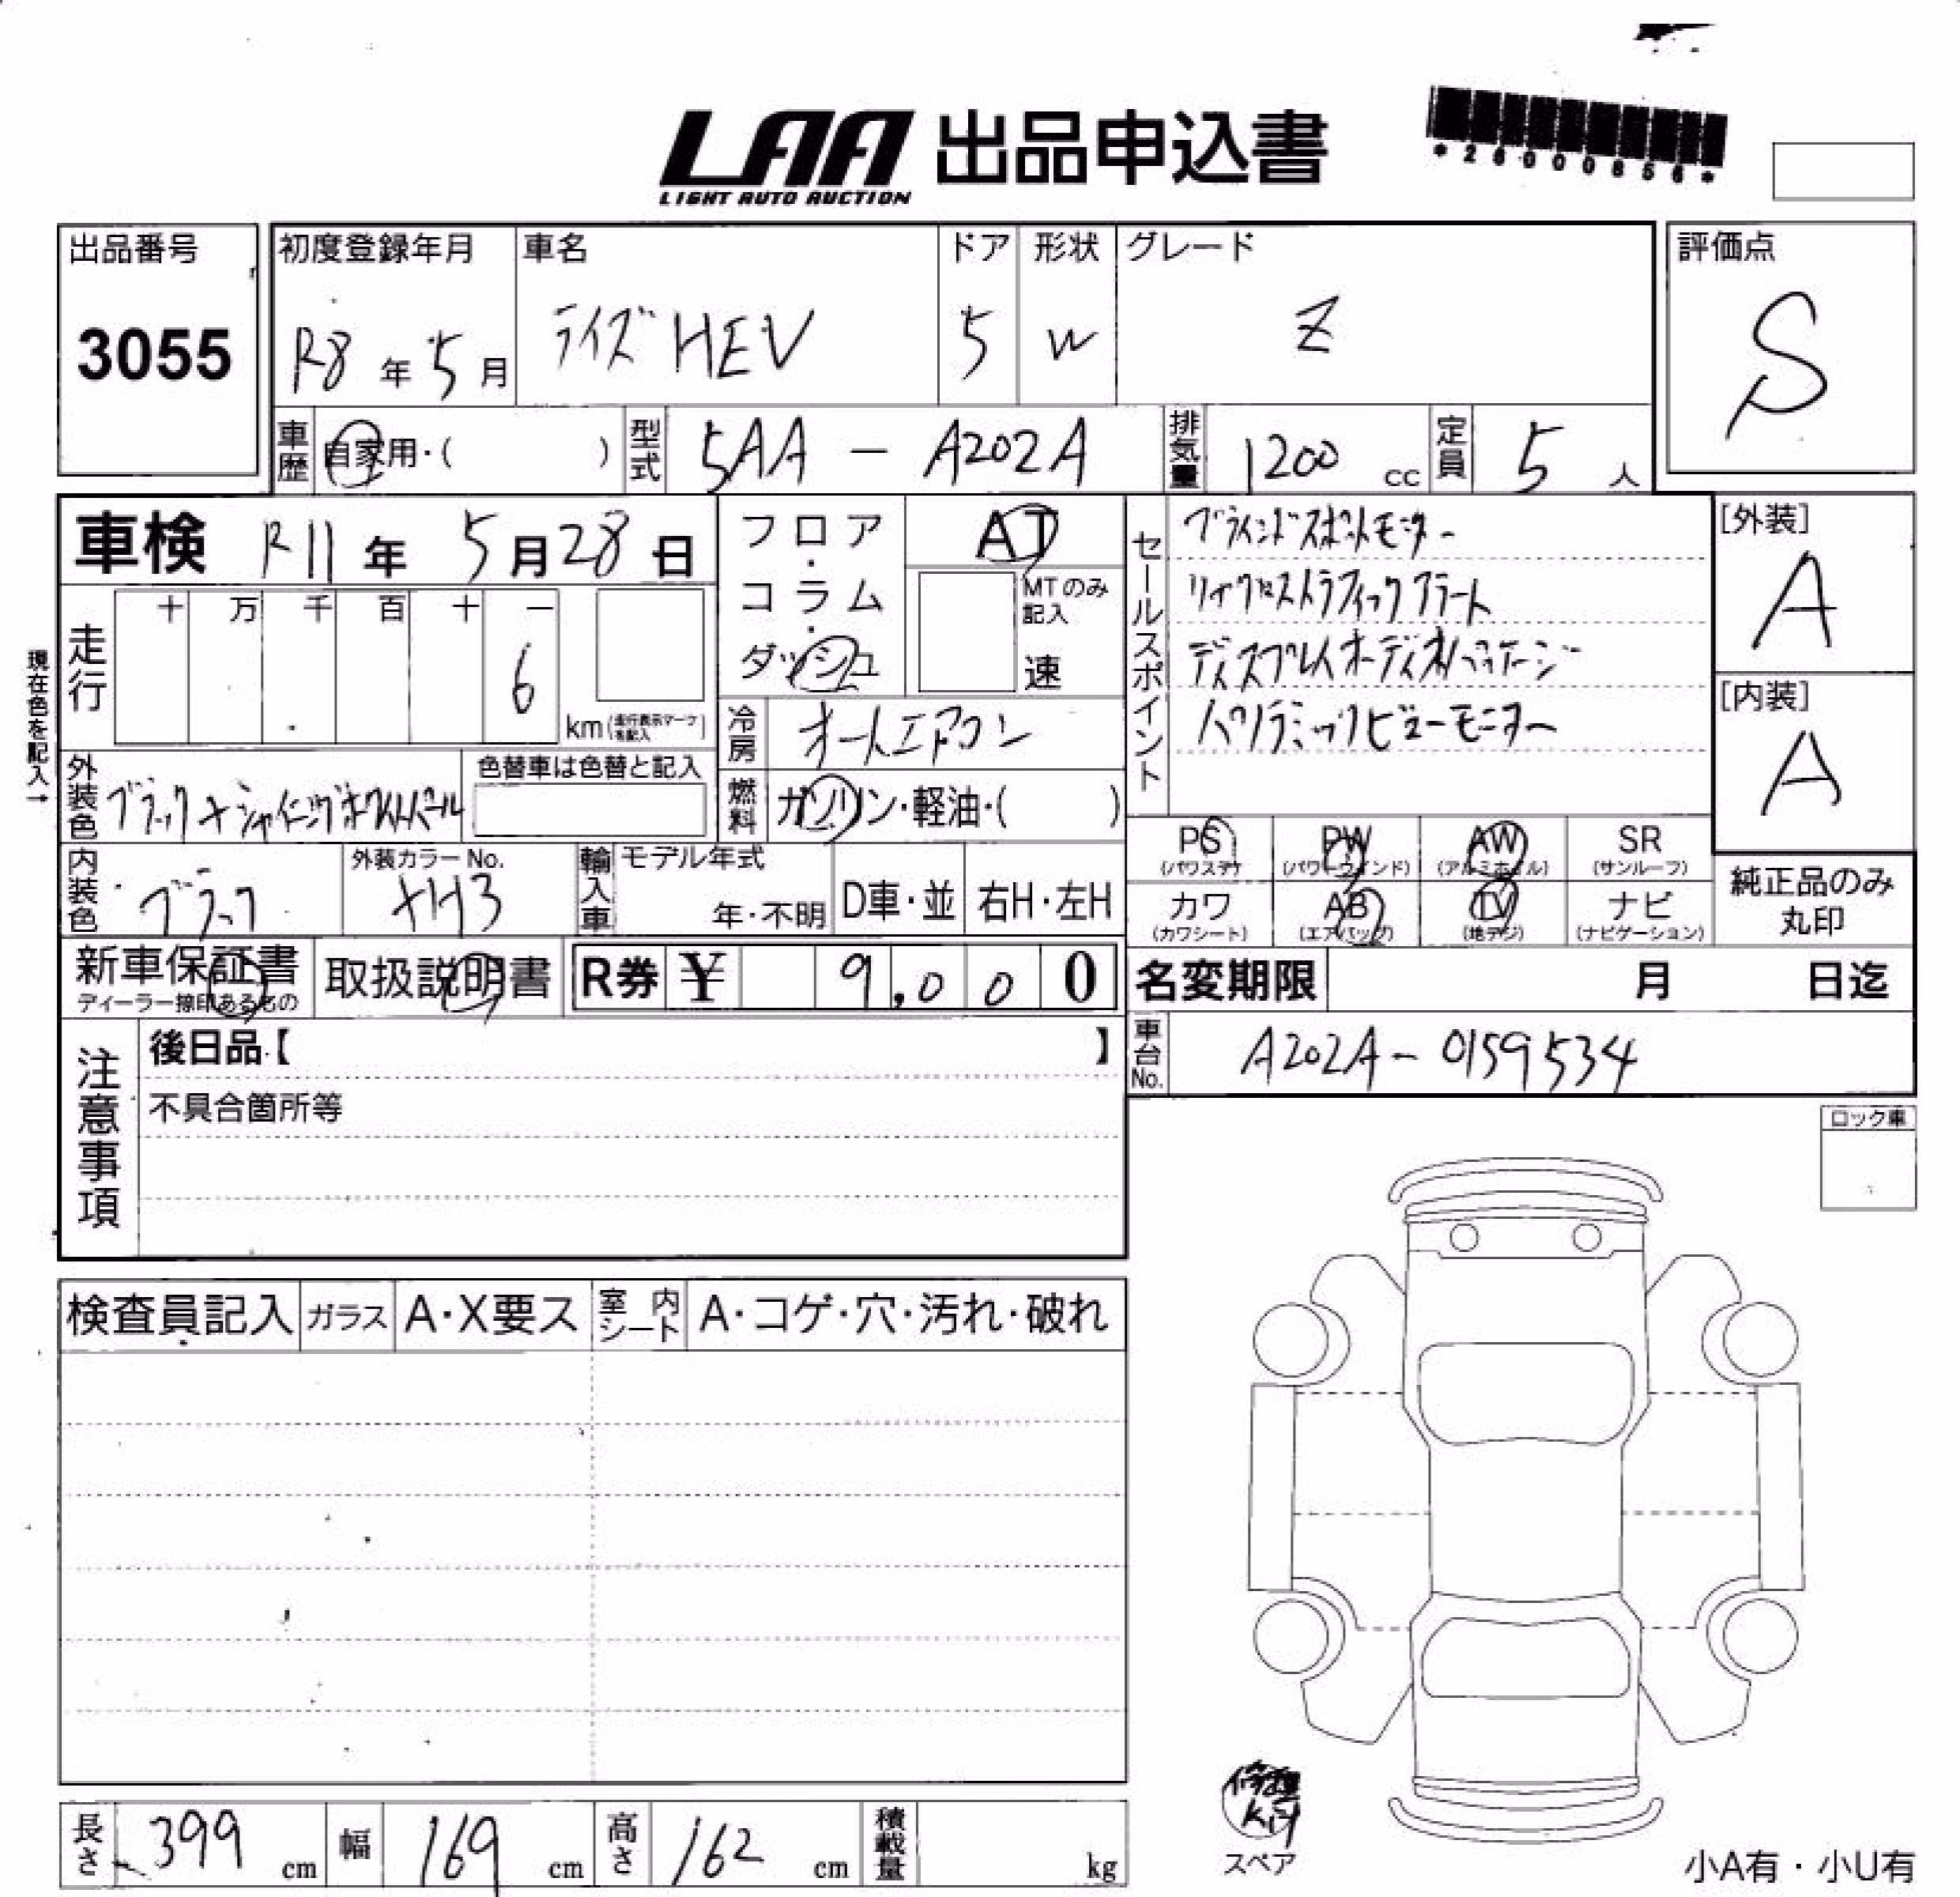 LAA 出品申込書
LIGHT AUTO AUCTION
*26000856*
出品番号
3055
初度登録年月
R8年5月
車名
ライズHEV
ドア
5
形状
W
グレード
Z
評価点
S
車歴
自家用・( )
型式
5AA - A202A
排気量
1200 cc
定員
5人
車検 R11年5月28日
フロア・コラム・ダッシュ
AT
MTのみ記入
速
現在色を記入→
走行
十 万 千 百 十 一
6
km(走行表示マークを記入)
冷房
オートエアコン
燃料
ガソリン・軽油・( )
セールスポイント
ブラインドスポットモニター
リヤクロストラフィックアラート
ディスプレイオーディオパッケージ
パノラミックビューモニター
[外装]
A
[内装]
A
外装色
ブラック+シャイニングホワイトパール
色替車は色替と記入
内装色
ブラック
外装カラーNo.
XH3
輸入車
モデル年式
年・不明
D車・並
右H・左H
PS
(パワステ)
PW
(パワーウインド)
AW
(アルミホイル)
SR
(サンルーフ)
カワ
(カワシート)
AB
(エアバッグ)
TV
(地デジ)
ナビ
(ナビゲーション)
純正品のみ
丸印
新車保証書
ディーラー捺印あるもの
取扱説明書
R券 ¥ 9,000
名変期限 月 日迄
車台No.
A202A-0159534
注意事項
後日品【 】
不具合箇所等
ロック車
検査員記入
ガラス
A・X要ス
室内シート
A・コゲ・穴・汚れ・破れ
長さ 399 cm
幅 169 cm
高さ 162 cm
積載量 kg
修理
Kit
スペア
小A有・小U有